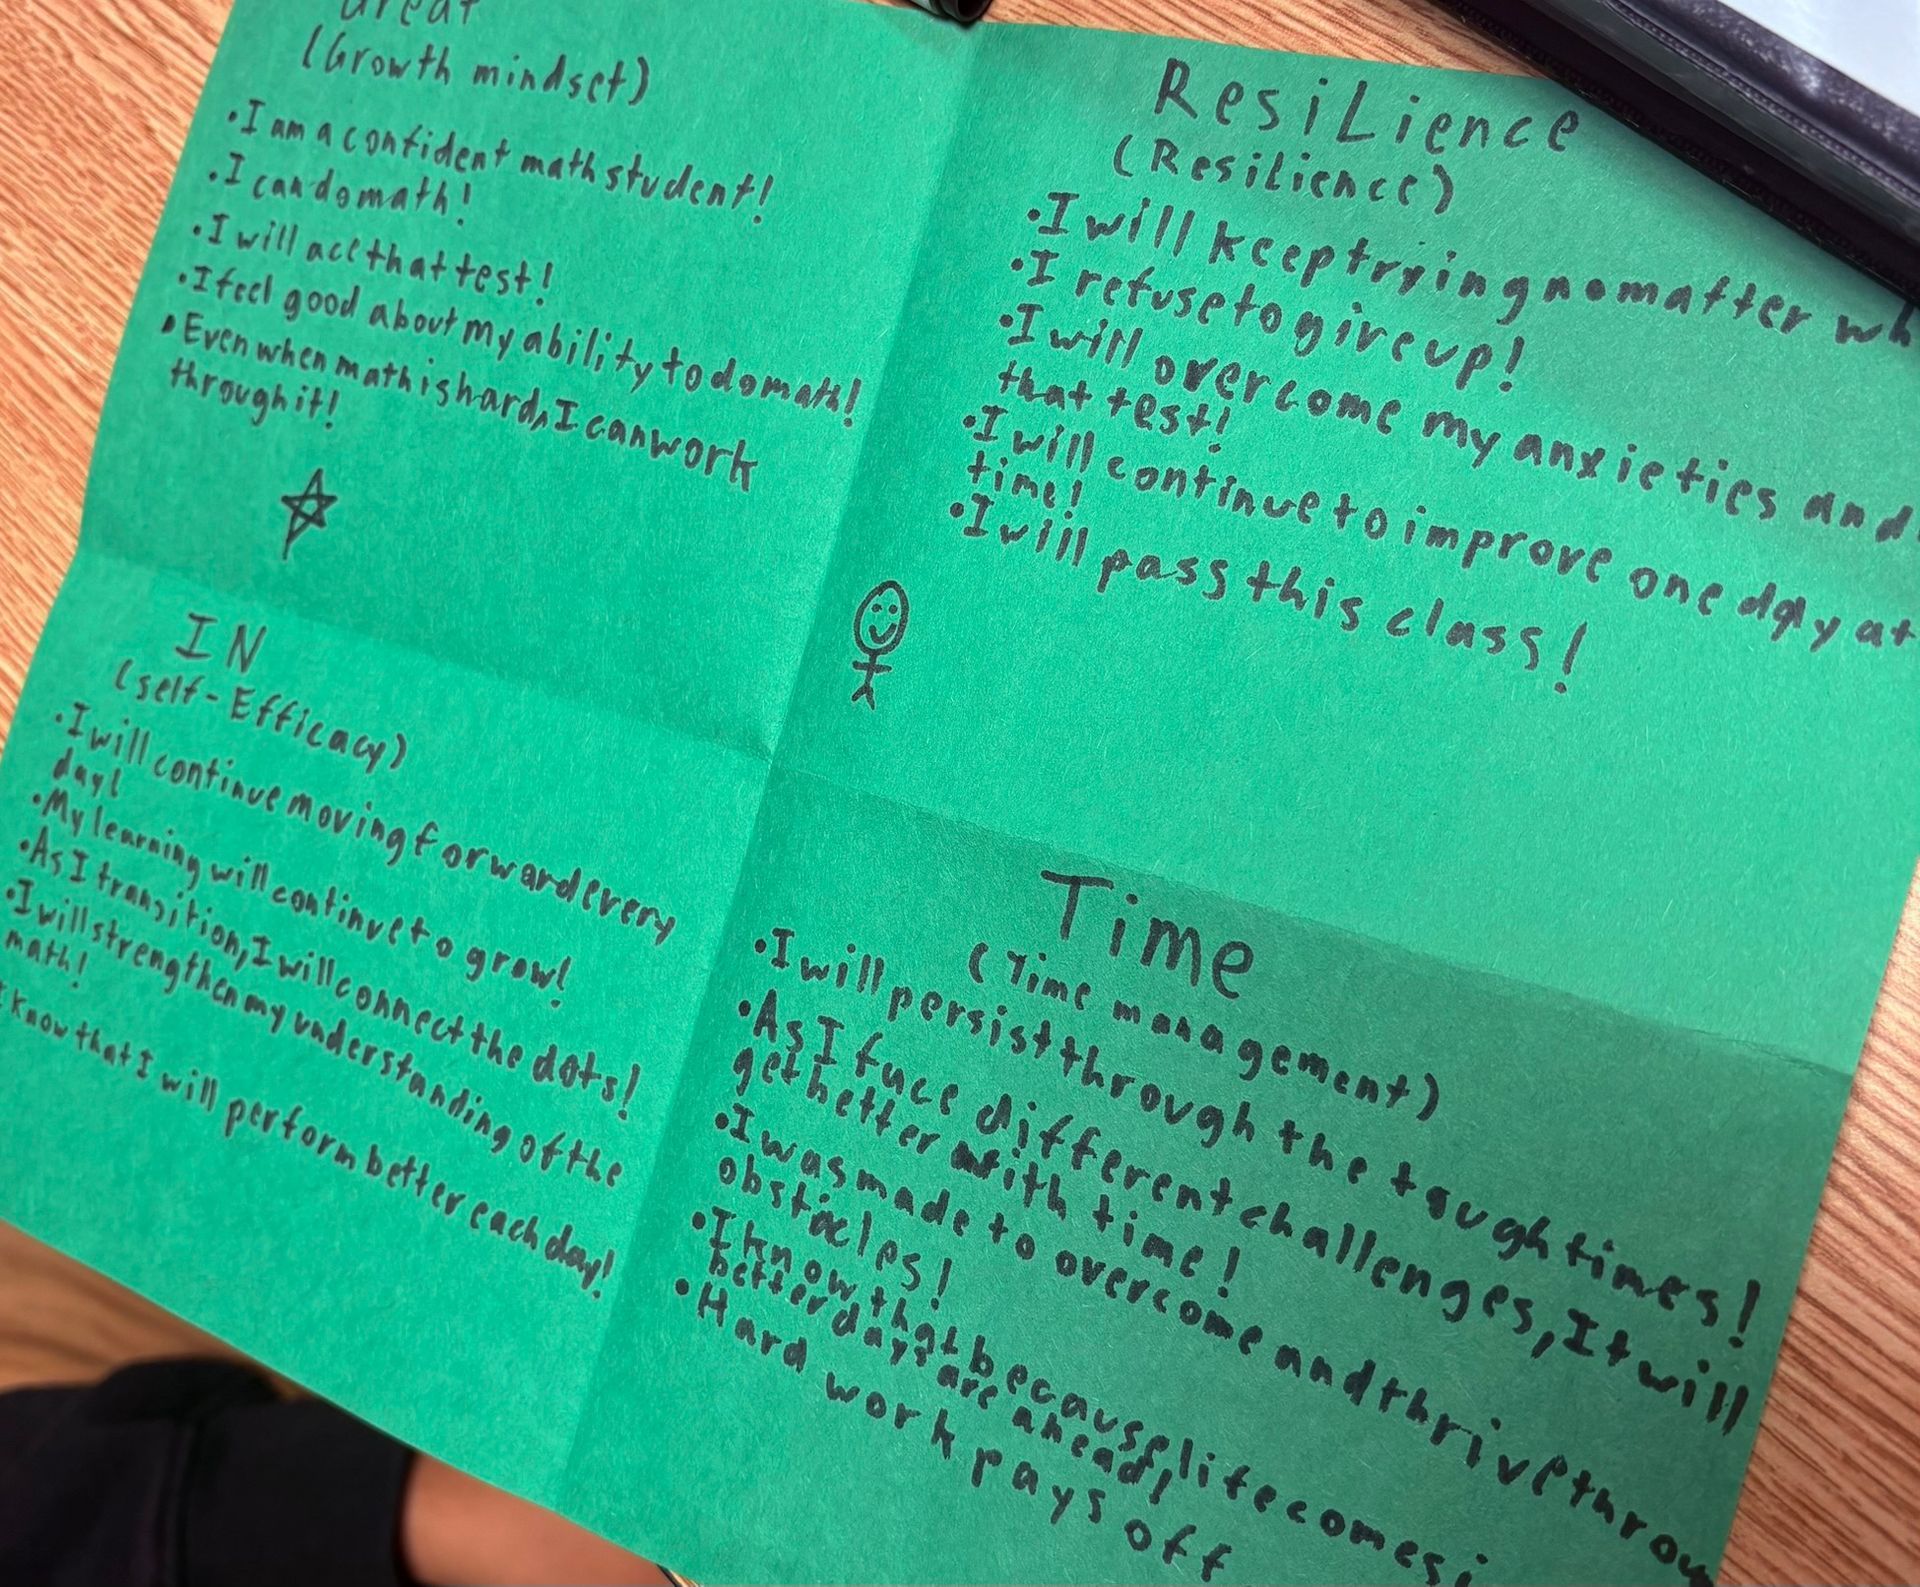 Great
(Growth mindset)
• I am a confident math student!
• I can do math!
• I will ace that test!
• I feel good about my ability to do math!
• Even when math is hard, I can work
through it!
ResiLience
(Resilience)
• I will keep trying no matter
• I refuse to give up!
• I will overcome my anxieties and
that test!
• I will continue to improve one day at
time!
• I will pass this class!
IN
(self-Efficacy)
• I will continue moving forward every
day!
• My learning will continue to grow!
• As I transition, I will connect the dots!
• I will strengthen my understanding of the
math!
I know that I will perform better each day!
Time
(Time management)
• I will persist through the tough times!
• As I face different challenges, It will
get better with time!
• I was made to overcome and thrive
obstacles!
• I know that because life comes
better days are ahead!
• Hard work pays off